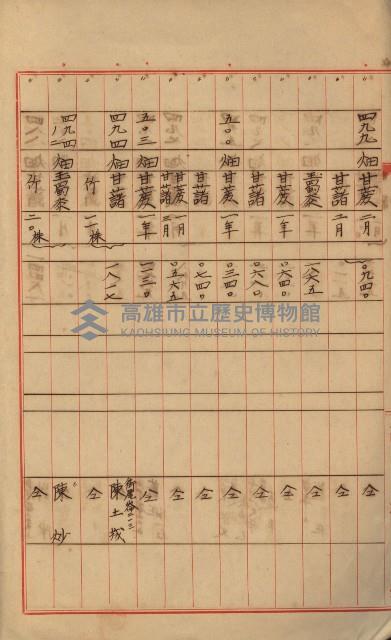 〃 四九九 畑 甘蔗 二月 〇九四〇 仝
〃 甘藷 二月 仝
〃 蜀黍 一八六五 仝
〃 甘蔗 一年 〇六四〇 仝
〃 甘藷 〇六八〇 仝
〃 五〇〇 畑 甘蔗 一年 〇三四〇 仝
〃 甘藷 〇七四〇 仝
〃 甘蔗 一月 甘藷 三月 〇五六五 仝
〃 五〇三 畑 甘蔗 一年 一一三〇 仝
〃 四九四 畑 甘藷 一八一七 陳土成
〃 竹 一一株 仝
〃 四九四 畑 蜀黍 〃 陳炒
〃 竹 二〇株 仝
高雄市立歷史博物館
KAOHSIUNG MUSEUM OF HISTORY